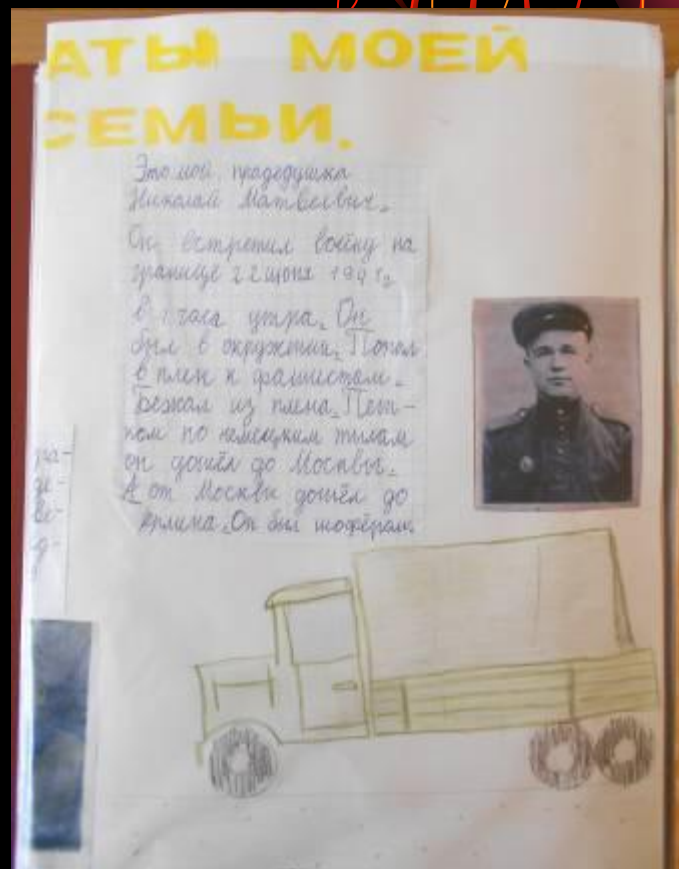 АТЫ МОЕЙ
СЕМЬИ.
Это мой прадедушка
Николай Матвеевич.
Он встретил войну на
границе 22 июня 1941г.
в часа утра. Он
был в окружении. Попал
в плен к фашистам.
Бежал из плена. Пеш-
ком по немецким тылам
он дошёл до Москвы.
А от Москвы дошёл до
ерлина. Он был шофёром.